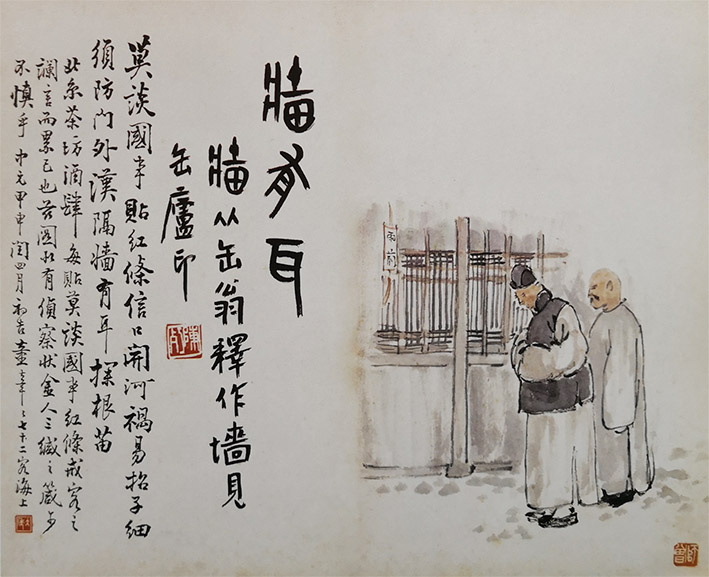 牆有耳
牆从缶翁釋作墻見
缶廬印
莫談國事貼紅條信口開河禍易招子細
須防門外漢隔牆有耳探根苗
北京茶坊酒肆每貼莫談國事紅條戒客之
讕言而累己也 有偵察狀金人三緘之箴可
不慎乎 中元甲申閏四月初吉 年七十二客海上
雨前
師曾